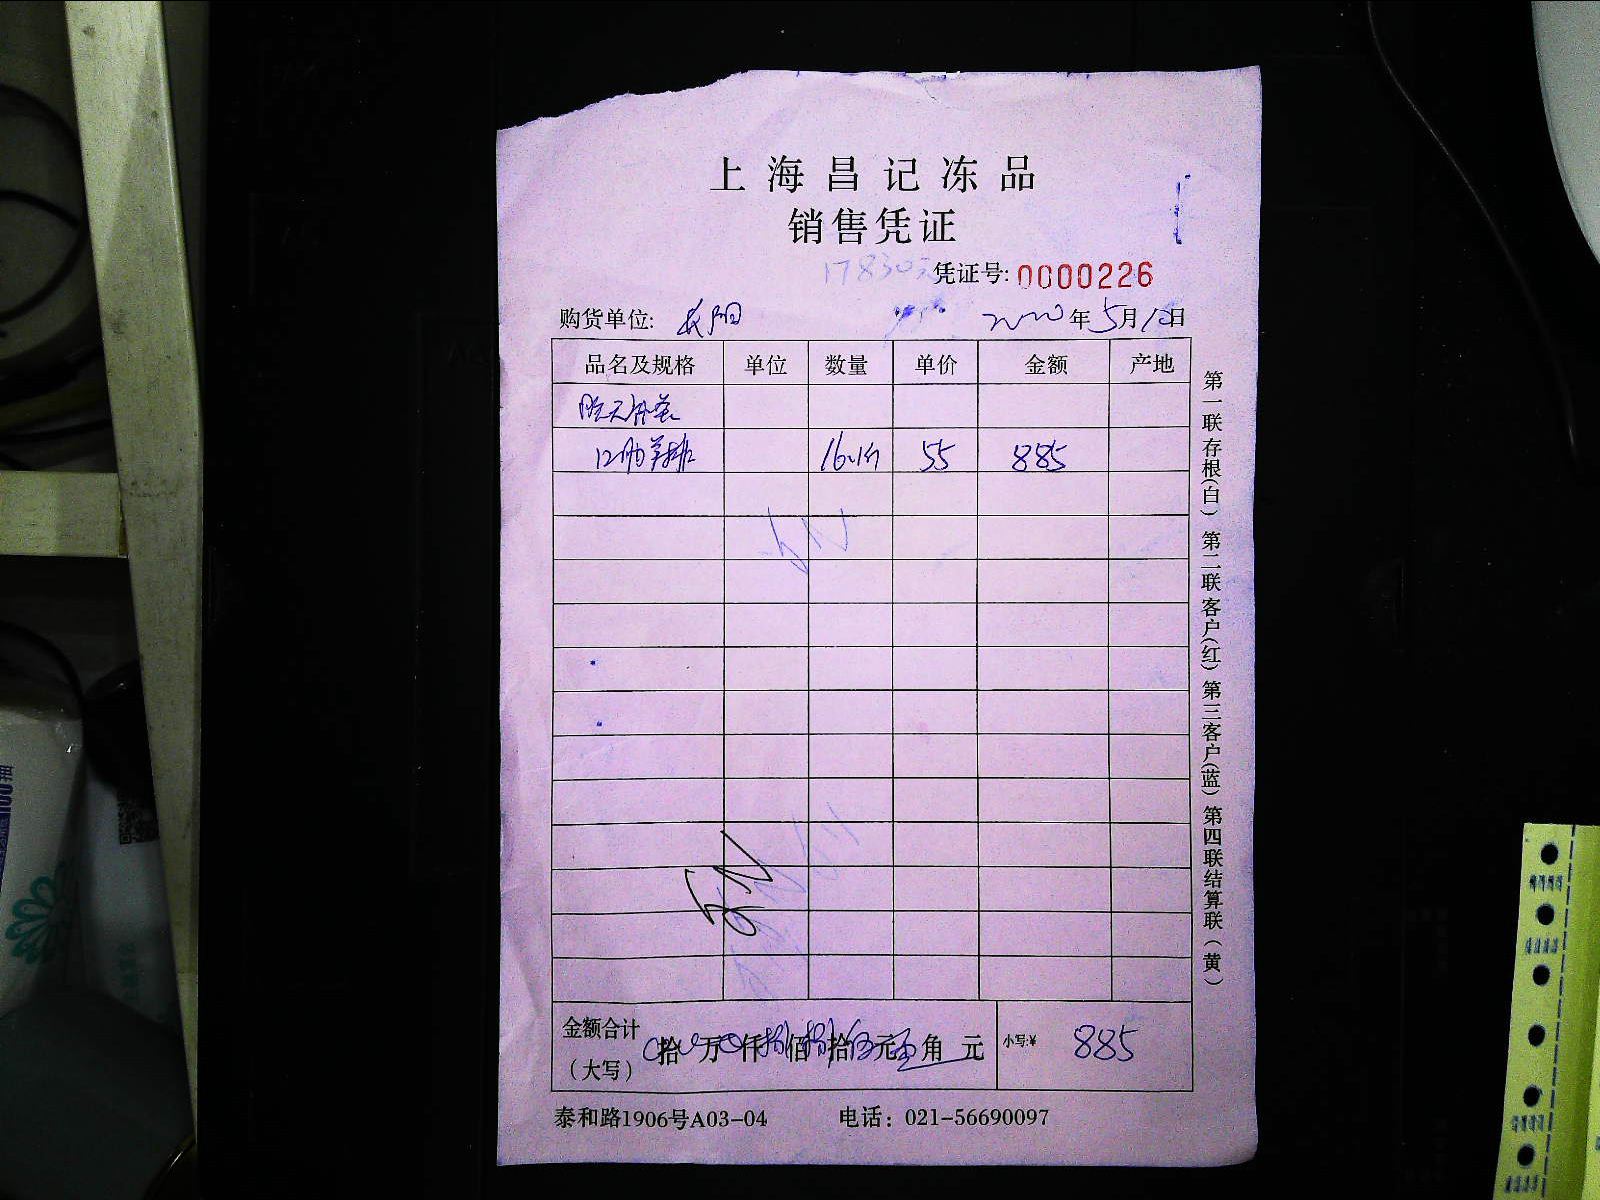 上海昌记冻品
销售凭证
17830元 凭证号: 0000226
购货单位: 2020年5月12日
品名及规格 单位 数量 单价 金额 产地
12肋羊排 16.1斤 55 885
金额合计 拾 万 仟 佰 拾 元 角 元 小写:¥ 885
(大写)
泰和路1906号A03-04 电话: 021-56690097
第一联存根(白) 第二联客户(红) 第三客户(蓝) 第四联结算联(黄)